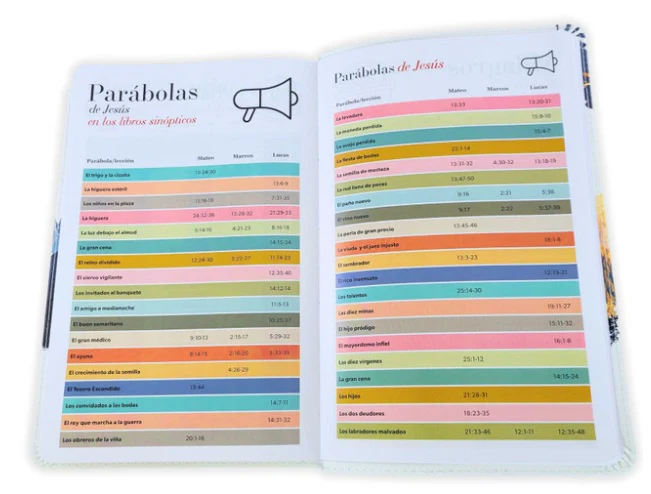 Parábolas
de Jesús
en los libros sinópticos
Parábola/lección Mateo Marcos Lucas
El trigo y la cizaña 13:24-30
La higuera estéril 13:6-9
Los niños en la plaza 11:16-19 7:31-35
La higuera 24:32-36 13:28-32 21:29-33
La luz debajo el almud 5:14-16 4:21-23 8:16-18
La gran cena 14:15-24
El reino dividido 12:24-30 3:22-27 11:14-23
El siervo vigilante 12:35-40
Los invitados al banquete 14:12-14
El amigo a medianoche 11:5-13
El buen samaritano 10:25-37
El gran médico 9:10-13 2:15-17 5:29-32
El ayuno 9:14-15 2:18-20 5:33-35
El crecimiento de la semilla 4:26-29
El Tesoro Escondido 13:44
Los convidados a las bodas 14:7-11
El rey que marcha a la guerra 14:31-32
Los obreros de la viña 20:1-16
Parábolas de Jesús
Parábola/lección Mateo Marcos Lucas
La levadura 13:33 13:20-21
La moneda perdida 15:8-10
La oveja perdida 15:4-7
La fiesta de bodas 22:1-14
La semilla de mostaza 13:31-32 4:30-32 13:18-19
La red llena de peces 13:47-50
El paño nuevo 9:16 2:21 5:36
El vino nuevo 9:17 2:22 5:37-39
La perla de gran precio 13:45-46
La viuda y el juez injusto 18:1-8
El sembrador 13:3-23
El rico insensato 12:13-21
Los talentos 25:14-30
Las diez minas 19:11-27
El hijo pródigo 15:11-32
El mayordomo infiel 16:1-8
Las diez vírgenes 25:1-12
La gran cena 14:15-24
Los hijos 21:28-31
Los dos deudores 18:23-35
Los labradores malvados 21:33-46 12:1-11 12:35-48